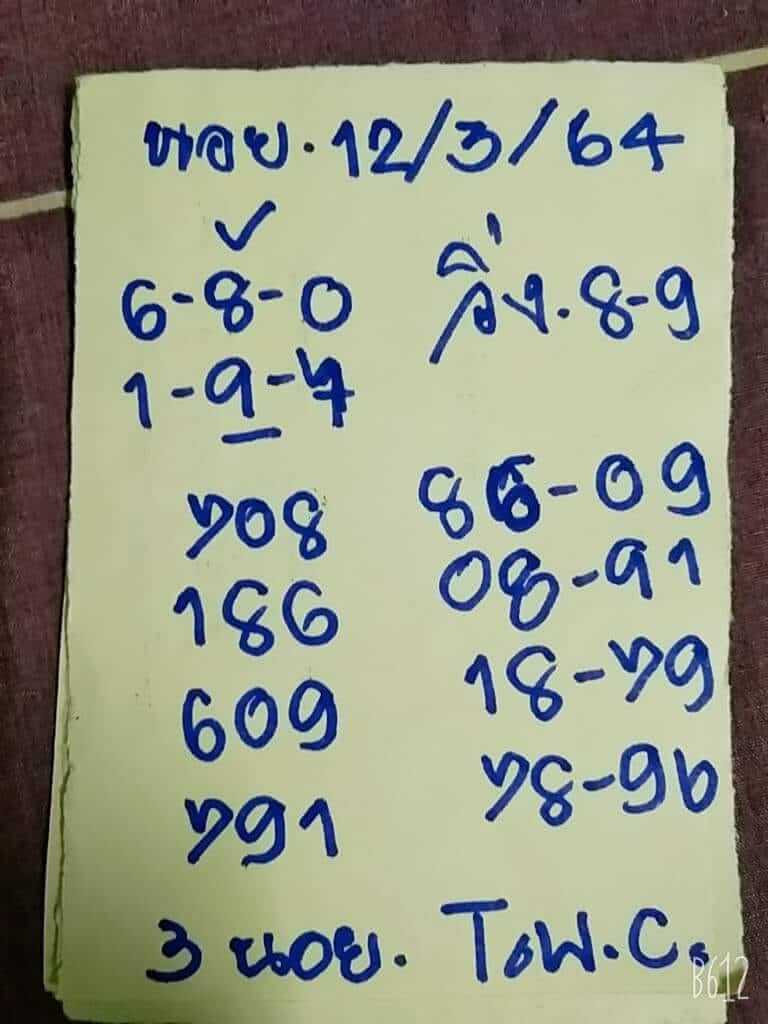 หอย.12/3/64
6-8-0 วิ่ง.8-9
1-9-7
708 86-09
186 08-91
609 18-79
791 78-96
3 นอย. T.W.C.
B612